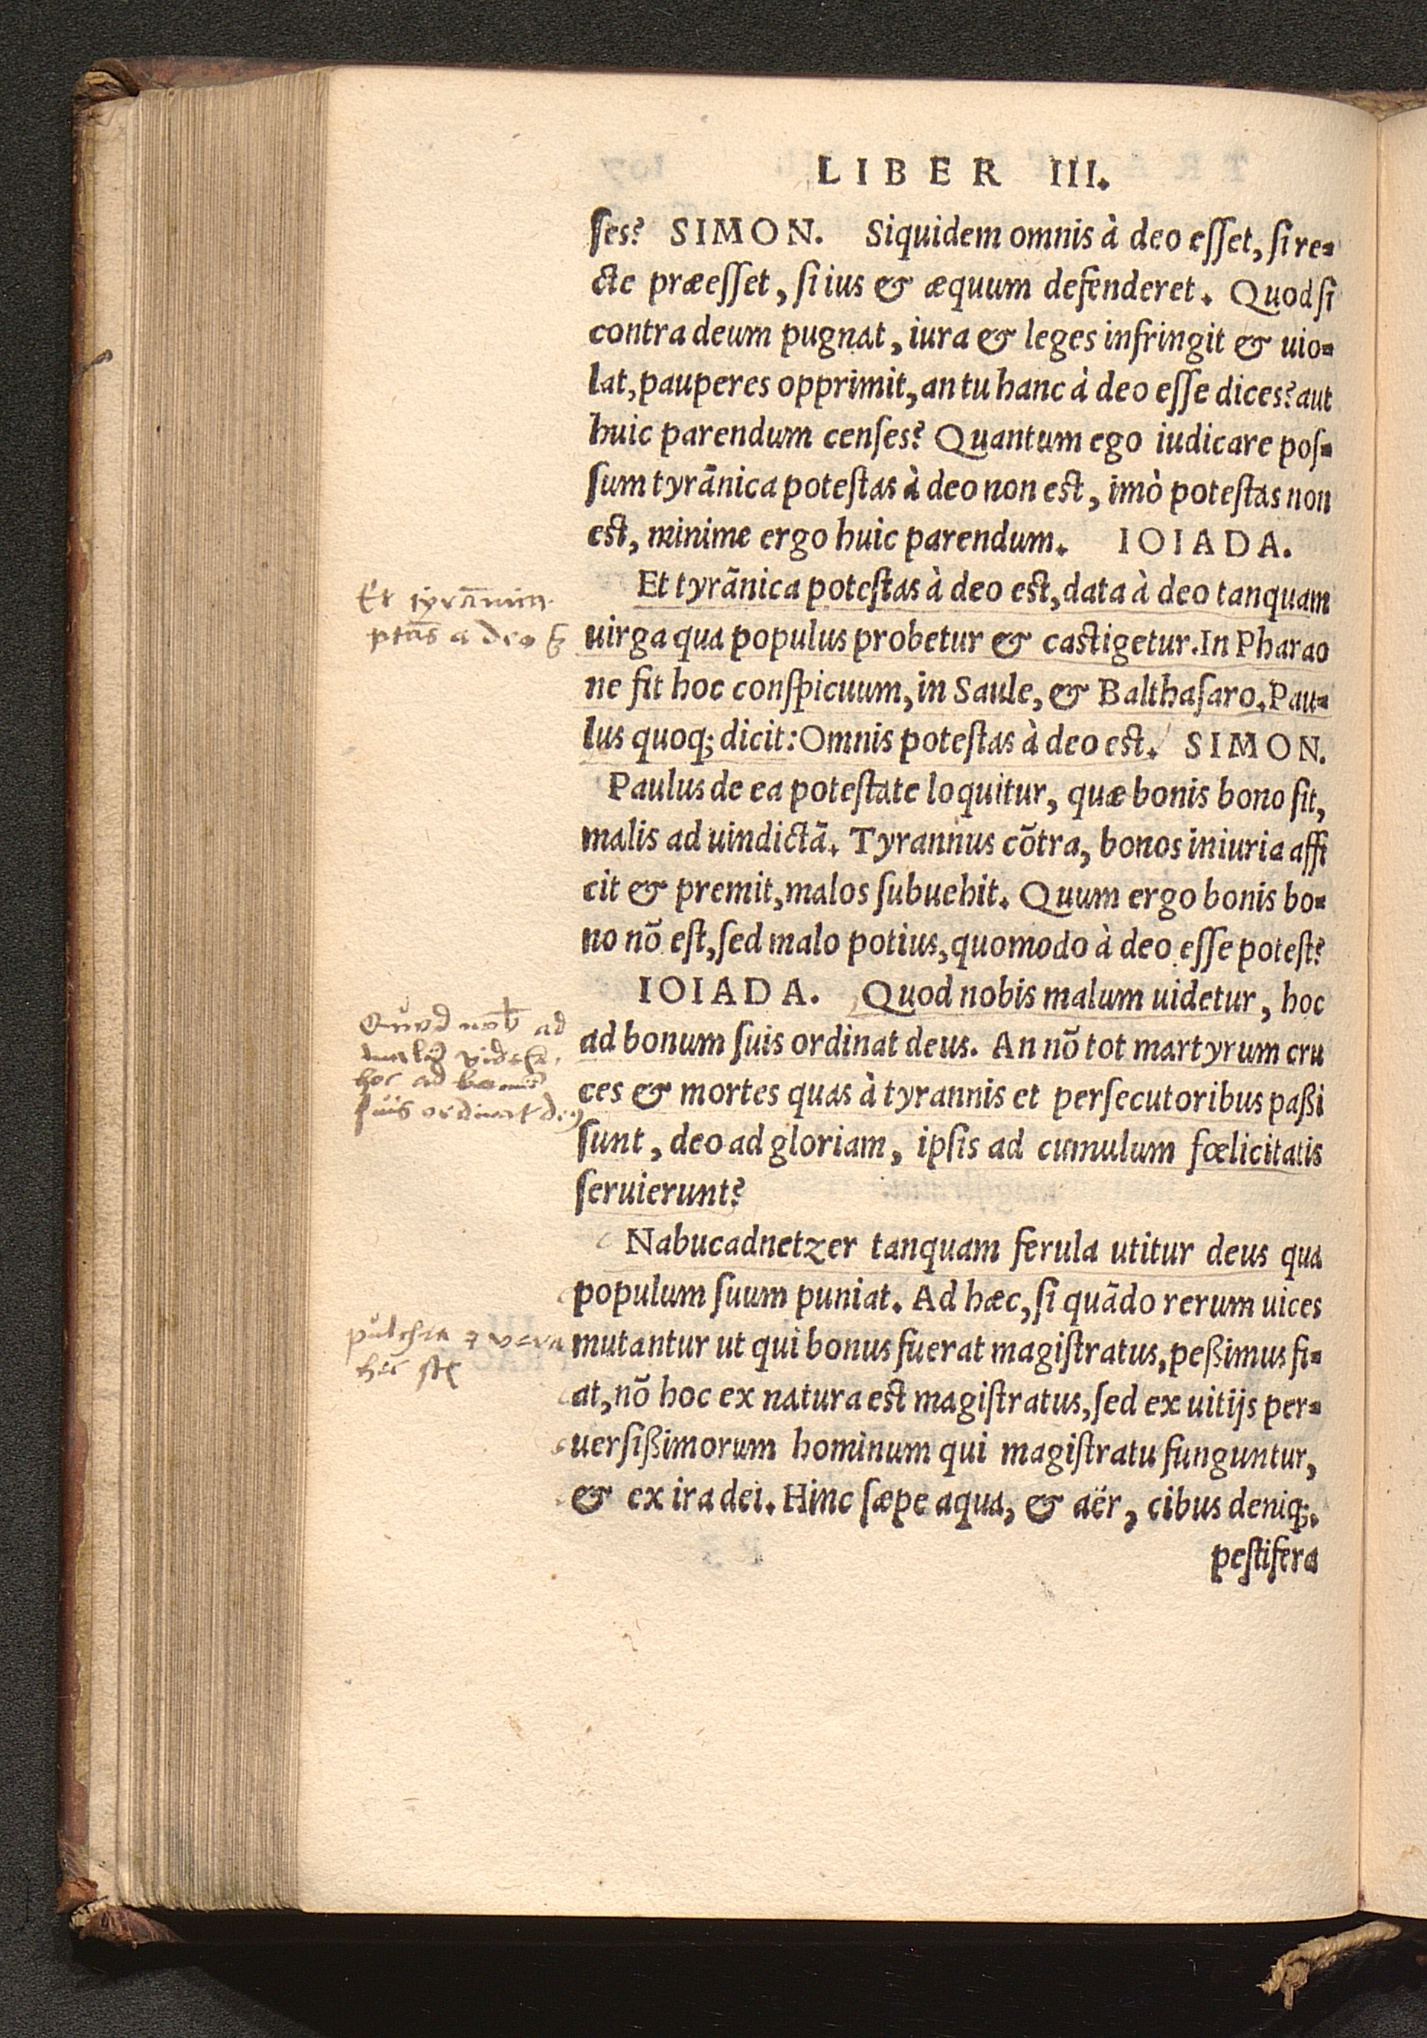 LIBER III.
ses? SIMON. Siquidem omnis à deo esset, si re-
cte præesset, si ius & æquum defenderet. Quod si
contra deum pugnat, iura & leges infringit & uio-
lat, pauperes opprimit, an tu hanc à deo esse dices? aut
huic parendum censes? Quantum ego iudicare pos-
sum tyrãnica potestas à deo non est, imò potestas non
est, minime ergo huic parendum. IOIADA.
Et tyrãnica potestas à deo est, data à deo tanquam
uirga qua populus probetur & castigetur. In Pharao
ne fit hoc conspicuum, in Saule, & Balthasaro. Pau-
lus quoq; dicit: Omnis potestas à deo est. SIMON.
Paulus de ea potestate loquitur, quæ bonis bono sit,
malis ad uindictã. Tyrannus cõtra, bonos iniuria affi
cit & premit, malos subuehit. Quum ergo bonis bo-
no nõ est, sed malo potius, quomodo à deo esse potest?
IOIADA. Quod nobis malum uidetur, hoc
ad bonum suis ordinat deus. An nõ tot martyrum cru
ces & mortes quas à tyrannis et persecutoribus paßi
sunt, deo ad gloriam, ipsis ad cumulum fœlicitatis
seruierunt?
Nabucadnetzer tanquam ferula utitur deus qua
populum suum puniat. Ad hæc, si quãdo rerum uices
mutantur ut qui bonus fuerat magistratus, peßimus fi-
at, nõ hoc ex natura est magistratus, sed ex uitijs per-
uersißimorum hominum qui magistratu funguntur,
& ex ira dei. Hinc sæpe aqua, & aër, cibus deniq;.
pestifera
Et
a deo
Quod ad
hoc ad
suis ordinat
pulchra vera